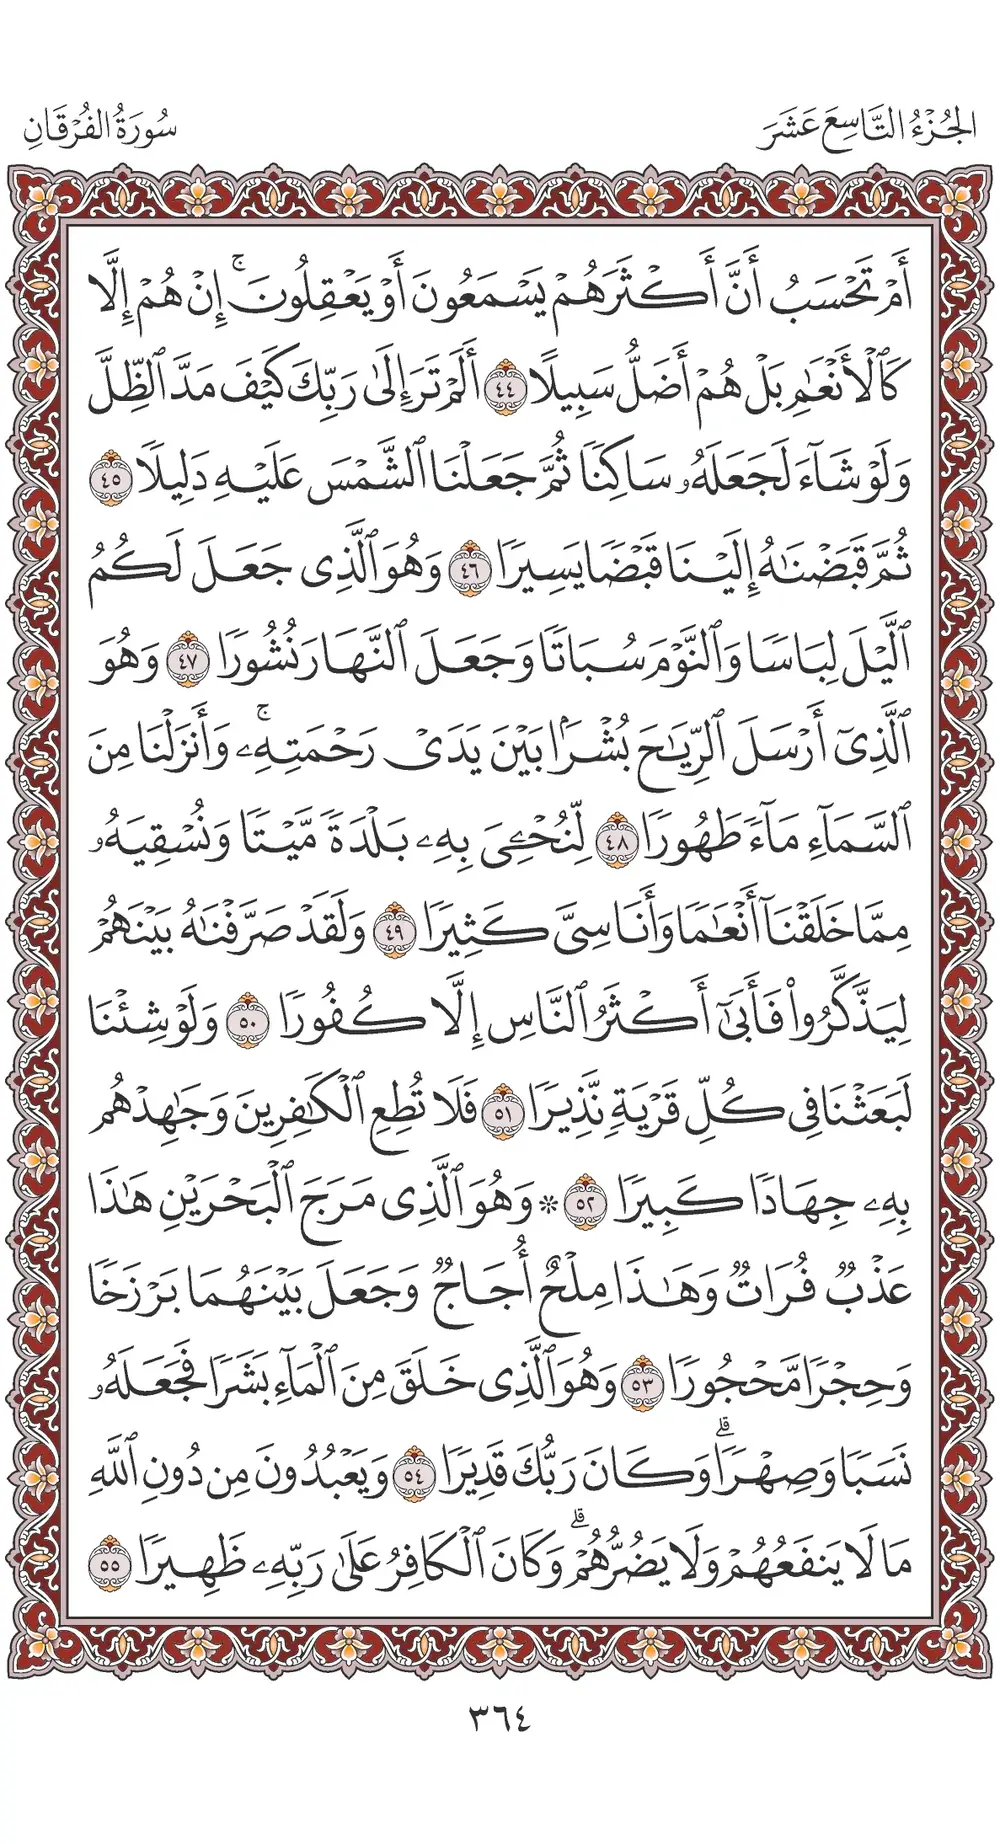 الجُزْءُ التَّاسِعَ عَشَرَ
سُورَةُ الفُرْقَانِ
أَمْ تَحْسَبُ أَنَّ أَكْثَرَهُمْ يَسْمَعُونَ أَوْ يَعْقِلُونَۚ إِنْ هُمْ إِلَّا
كَٱلْأَنْعَٰمِ بَلْ هُمْ أَضَلُّ سَبِيلًا ٤٤ أَلَمْ تَرَ إِلَىٰ رَبِّكَ كَيْفَ مَدَّ ٱلظِّلَّ
وَلَوْ شَآءَ لَجَعَلَهُۥ سَاكِنٗا ثُمَّ جَعَلْنَا ٱلشَّمْسَ عَلَيْهِ دَلِيلٗا ٤٥
ثُمَّ قَبَضْنَٰهُ إِلَيْنَا قَبْضٗا يَسِيرٗا ٤٦ وَهُوَ ٱلَّذِي جَعَلَ لَكُمُ
ٱلَّيْلَ لِبَاسٗا وَٱلنَّوْمَ سُبَاتٗا وَجَعَلَ ٱلنَّهَارَ نُشُورٗا ٤٧ وَهُوَ
ٱلَّذِيٓ أَرْسَلَ ٱلرِّيَٰحَ بُشْرَۢا بَيْنَ يَدَيْ رَحْمَتِهِۦۚ وَأَنزَلْنَا مِنَ
ٱلسَّمَآءِ مَآءٗ طَهُورٗا ٤٨ لِّنُحْـِۧيَ بِهِۦ بَلْدَةٗ مَّيْتٗا وَنُسْقِيَهُۥ
مِمَّا خَلَقْنَآ أَنْعَٰمٗا وَأَنَاسِيَّ كَثِيرٗا ٤٩ وَلَقَدْ صَرَّفْنَٰهُ بَيْنَهُمْ
لِيَذَّكَّرُواْ فَأَبَىٰٓ أَكْثَرُ ٱلنَّاسِ إِلَّا كُفُورٗا ٥٠ وَلَوْ شِئْنَا
لَبَعَثْنَا فِي كُلِّ قَرْيَةٖ نَّذِيرٗا ٥١ فَلَا تُطِعِ ٱلْكَٰفِرِينَ وَجَٰهِدْهُم
بِهِۦ جِهَادٗا كَبِيرٗا ٥٢ * وَهُوَ ٱلَّذِي مَرَجَ ٱلْبَحْرَيْنِ هَٰذَا
عَذْبٞ فُرَاتٞ وَهَٰذَا مِلْحٌ أُجَاجٞ وَجَعَلَ بَيْنَهُمَا بَرْزَخٗا
وَحِجْرٗا مَّحْجُورٗا ٥٣ وَهُوَ ٱلَّذِي خَلَقَ مِنَ ٱلْمَآءِ بَشَرٗا فَجَعَلَهُۥ
نَسَبٗا وَصِهْرٗاۗ وَكَانَ رَبُّكَ قَدِيرٗا ٥٤ وَيَعْبُدُونَ مِن دُونِ ٱللَّهِ
مَا لَا يَنفَعُهُمْ وَلَا يَضُرُّهُمْۗ وَكَانَ ٱلْكَافِرُ عَلَىٰ رَبِّهِۦ ظَهِيرٗا ٥٥
٣٦٤